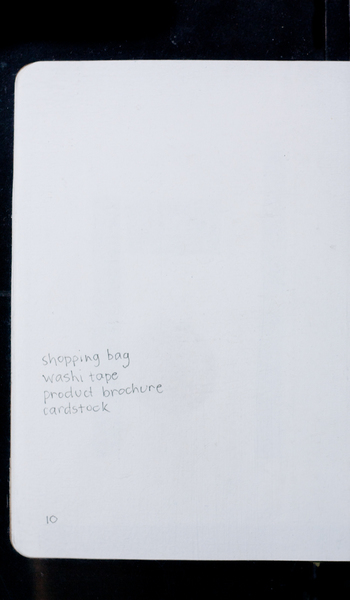 shopping bag
washi tape
product brochure
cardstock
10